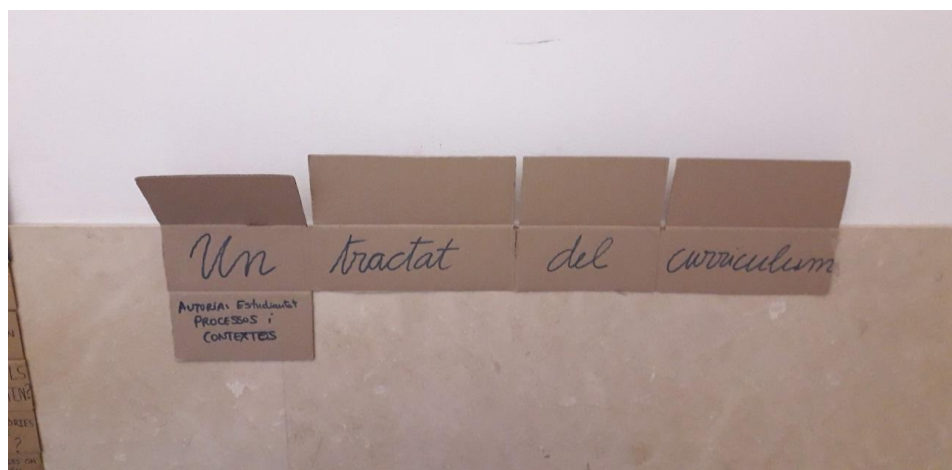 Un tractat del curriculum
AUTORIA: Estudiantat
PROCESSOS i
CONTEXTOS
LS
TEN?
ORIES
?